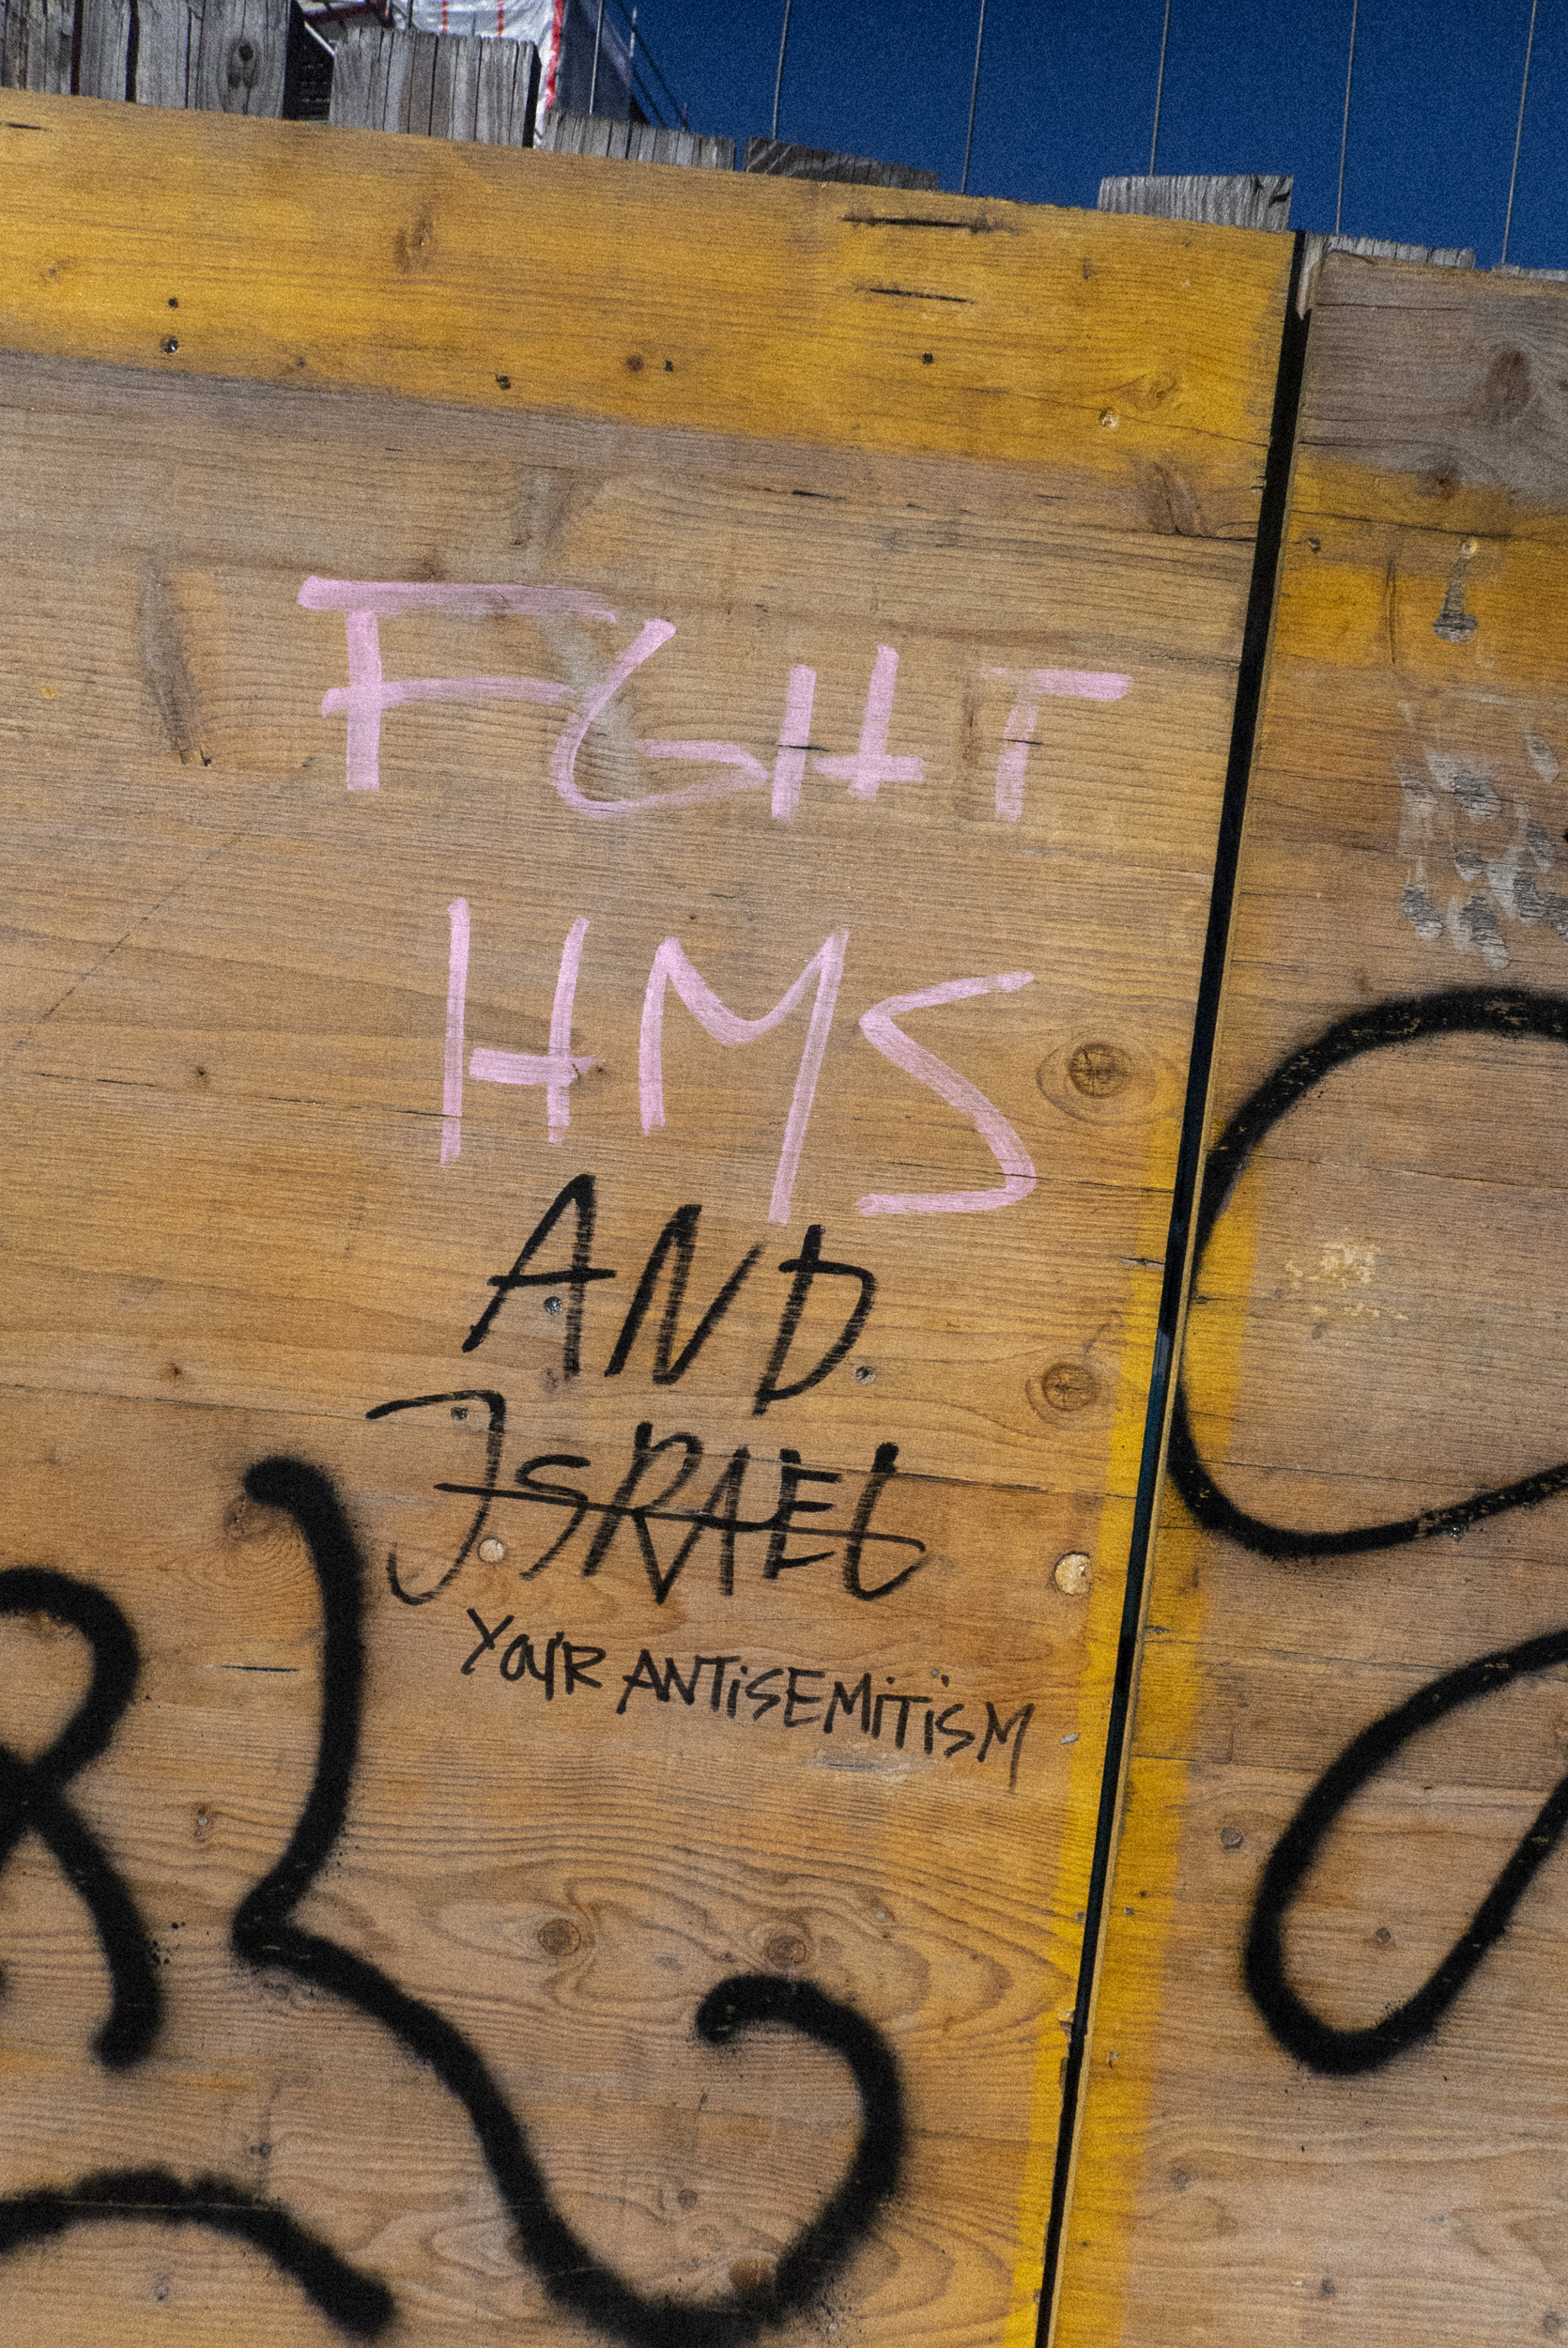 FGHT
HMS
AND
ISRAEL
YOUR ANTiSEMiTiSM